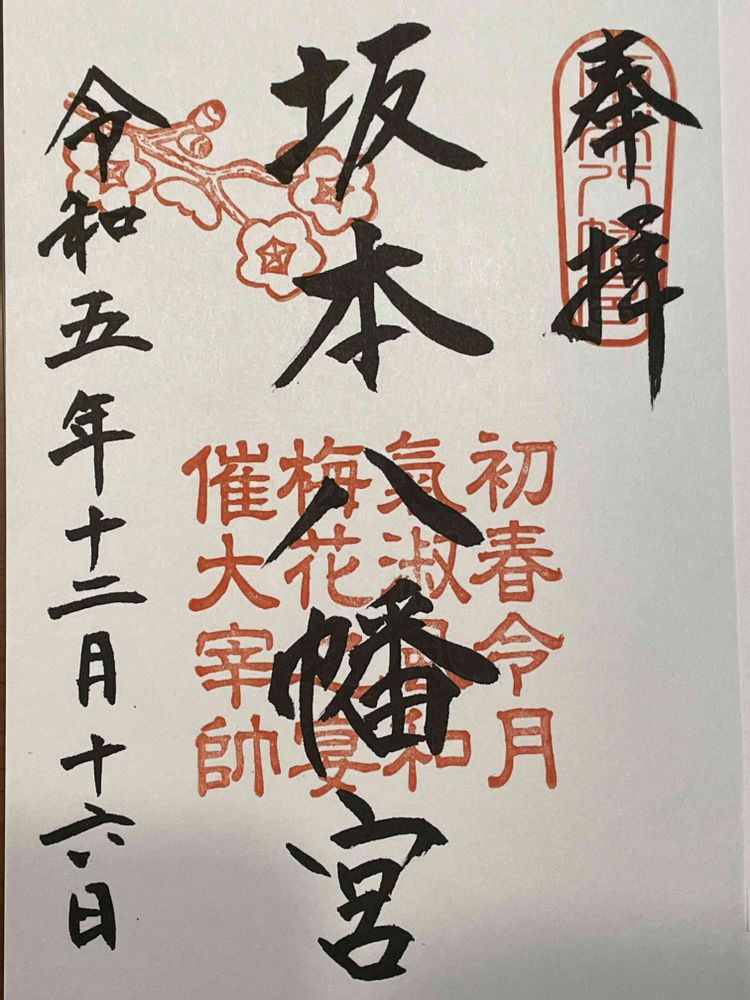 奉拝
坂本八幡宮
初春令月
氣淑風和
梅花之宴
催大宰帥
令和五年十二月十六日